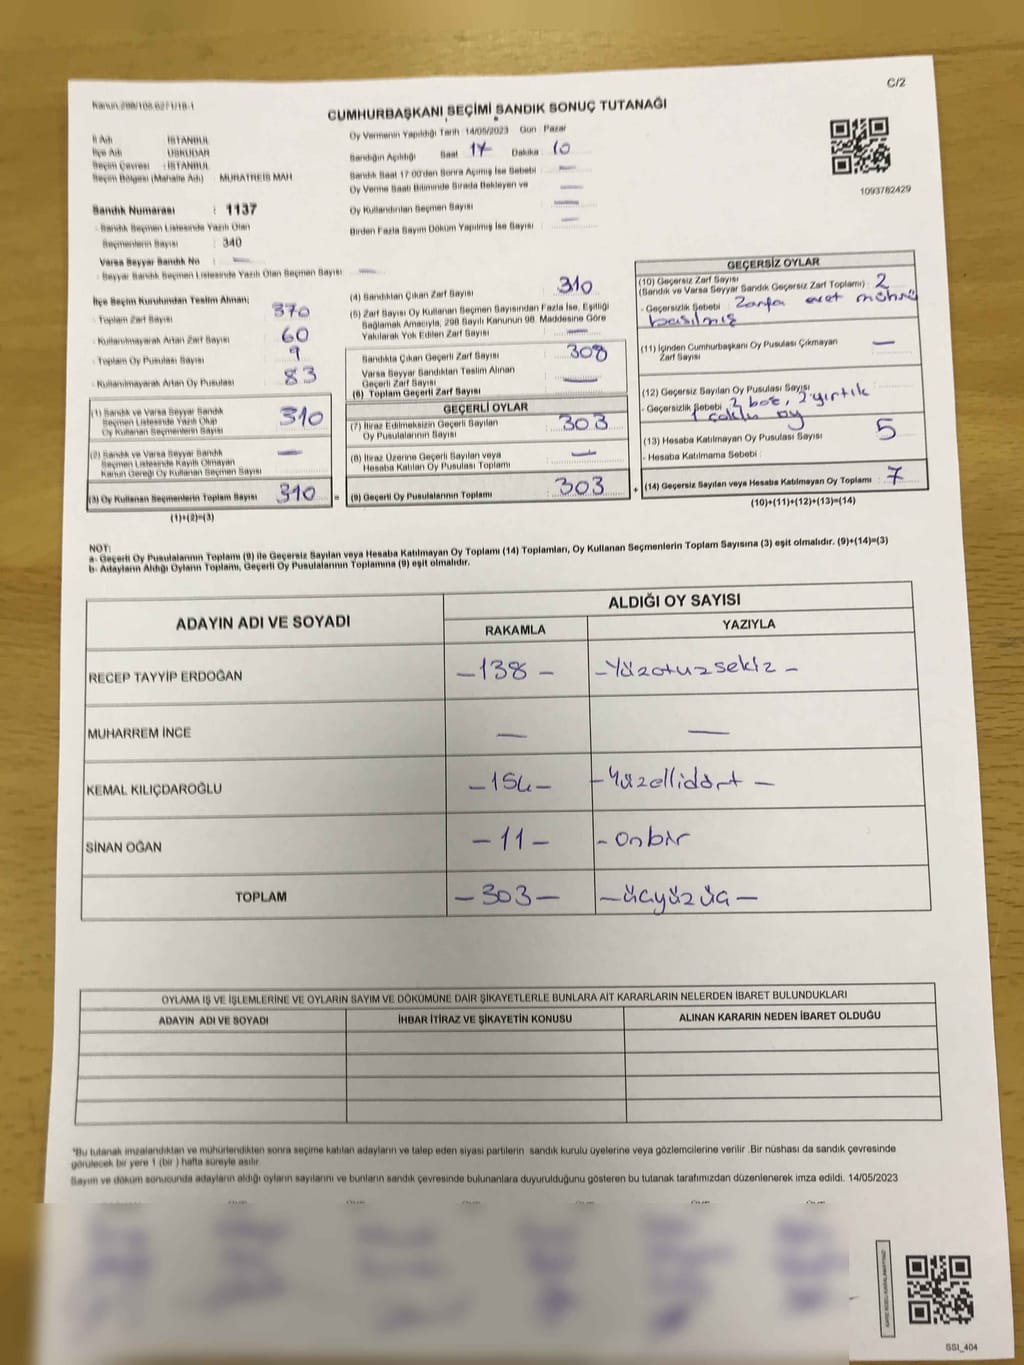 Kanun 298/105.627/1/18-1
C/2
CUMHURBAŞKANI SEÇİMİ SANDIK SONUÇ TUTANAĞI
İl Adı : İSTANBUL
İlçe Adı : ÜSKÜDAR
Seçim Çevresi : İSTANBUL
Seçim Bölgesi (Mahalle Adı) : MURATREİS MAH
Sandık Numarası : 1137
- Sandık Seçmen Listesinde Yazılı Olan
Seçmenlerin Sayısı : 340
Varsa Seyyar Sandık No : —
- Seyyar Sandık Seçmen Listesinde Yazılı Olan Seçmen Sayısı : —
Oy Vermenin Yapıldığı Tarih 14/05/2023 Gün Pazar
Sandığın Açıldığı Saat 17 Dakika 10
Sandık Saat 17:00'den Sonra Açılmış İse Sebebi : —
Oy Verme Saati Bitiminde Sırada Bekleyen ve —
Oy Kullandırılan Seçmen Sayısı : —
Birden Fazla Sayım Döküm Yapılmış İse Sayısı : —
1093782429
İlçe Seçim Kurulundan Teslim Alınan;
- Toplam Zarf Sayısı 370
- Kullanılmayarak Artan Zarf Sayısı 60
- Toplam Oy Pusulası Sayısı
- Kullanılmayarak Artan Oy Pusulası 83
(1) Sandık ve Varsa Seyyar Sandık
Seçmen Listesinde Yazılı Olup
Oy Kullanan Seçmenlerin Sayısı : 310
(2) Sandık ve Varsa Seyyar Sandık
Seçmen Listesinde Kayıtlı Olmayan
Kanun Gereği Oy Kullanan Seçmen Sayısı : —
(3) Oy Kullanan Seçmenlerin Toplam Sayısı : 310 =
(1)+(2)=(3)
(4) Sandıktan Çıkan Zarf Sayısı : 310
(5) Zarf Sayısı Oy Kullanan Seçmen Sayısından Fazla İse, Eşitliği
Sağlamak Amacıyla, 298 Sayılı Kanunun 98. Maddesine Göre
Yakılarak Yok Edilen Zarf Sayısı : —
Sandıkta Çıkan Geçerli Zarf Sayısı : 308
Varsa Seyyar Sandıktan Teslim Alınan
Geçerli Zarf Sayısı : —
(6) Toplam Geçerli Zarf Sayısı
GEÇERLİ OYLAR
(7) İtiraz Edilmeksizin Geçerli Sayılan
Oy Pusulalarının Sayısı : 303
(8) İtiraz Üzerine Geçerli Sayılan veya
Hesaba Katılan Oy Pusulası Toplamı : —
(9) Geçerli Oy Pusulalarının Toplamı : 303 +
GEÇERSİZ OYLAR
(10) Geçersiz Zarf Sayısı
(Sandık ve Varsa Seyyar Sandık Geçersiz Zarf Toplamı) : 2
- Geçersizlik Sebebi : Zarfa evet mührü
basılmış
(11) İçinden Cumhurbaşkanı Oy Pusulası Çıkmayan
Zarf Sayısı : —
(12) Geçersiz Sayılan Oy Pusulası Sayısı
- Geçersizlik Sebebi 2 boş, 2 yırtık
1 çoklu oy
(13) Hesaba Katılmayan Oy Pusulası Sayısı : 5
- Hesaba Katılmama Sebebi :
(14) Geçersiz Sayılan veya Hesaba Katılmayan Oy Toplamı : 7
(10)+(11)+(12)+(13)=(14)
NOT:
a- Geçerli Oy Pusulalarının Toplamı (9) ile Geçersiz Sayılan veya Hesaba Katılmayan Oy Toplamı (14) Toplamları, Oy Kullanan Seçmenlerin Toplam Sayısına (3) eşit olmalıdır. (9)+(14)=(3)
b- Adayların Aldığı Oyların Toplamı, Geçerli Oy Pusulalarının Toplamına (9) eşit olmalıdır.
ADAYIN ADI VE SOYADI
ALDIĞI OY SAYISI
RAKAMLA YAZIYLA
RECEP TAYYİP ERDOĞAN —138— —Yüzotuzsekiz—
MUHARREM İNCE — —
KEMAL KILIÇDAROĞLU —154— —Yüzellidört—
SİNAN OĞAN —11— —Onbir
TOPLAM —303— —üçyüzüç—
OYLAMA İŞ VE İŞLEMLERİNE VE OYLARIN SAYIM VE DÖKÜMÜNE DAİR ŞİKAYETLERLE BUNLARA AİT KARARLARIN NELERDEN İBARET BULUNDUKLARI
ADAYIN ADI VE SOYADI İHBAR İTİRAZ VE ŞİKAYETİN KONUSU ALINAN KARARIN NEDEN İBARET OLDUĞU
*Bu tutanak imzalandıktan ve mühürlendikten sonra seçime katılan adayların ve talep eden siyasi partilerin sandık kurulu üyelerine veya gözlemcilerine verilir .Bir nüshası da sandık çevresinde
görülecek bir yere 1 (bir ) hafta süreyle asılır.
Sayım ve döküm sonucunda adayların aldığı oyların sayılarını ve bunların sandık çevresinde bulunanlara duyurulduğunu gösteren bu tutanak tarafımızdan düzenlenerek imza edildi. 14/05/2023
SSI_404